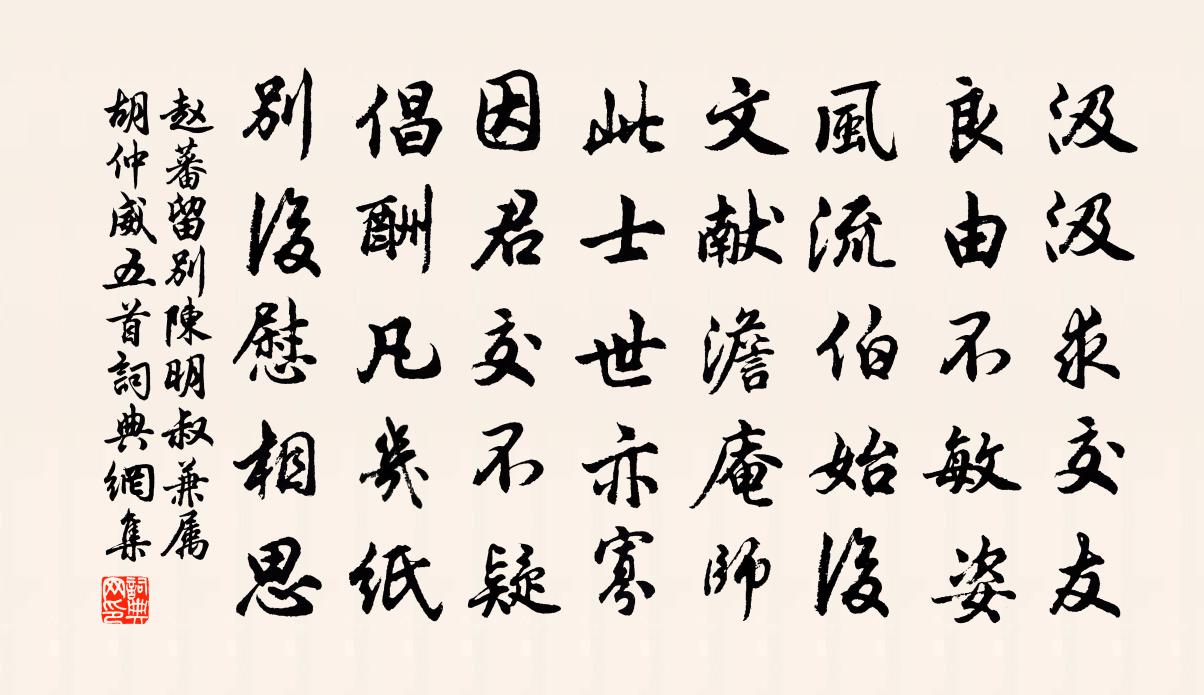 汲汲求交友
良由不敏姿
風流伯始後
文献澹庵師
此士世亦寡
因君交不疑
倡酬凡幾紙
別後慰相思
赵蕃留別陳明叔兼属
胡仲威五首詞典網集
詞典
网印